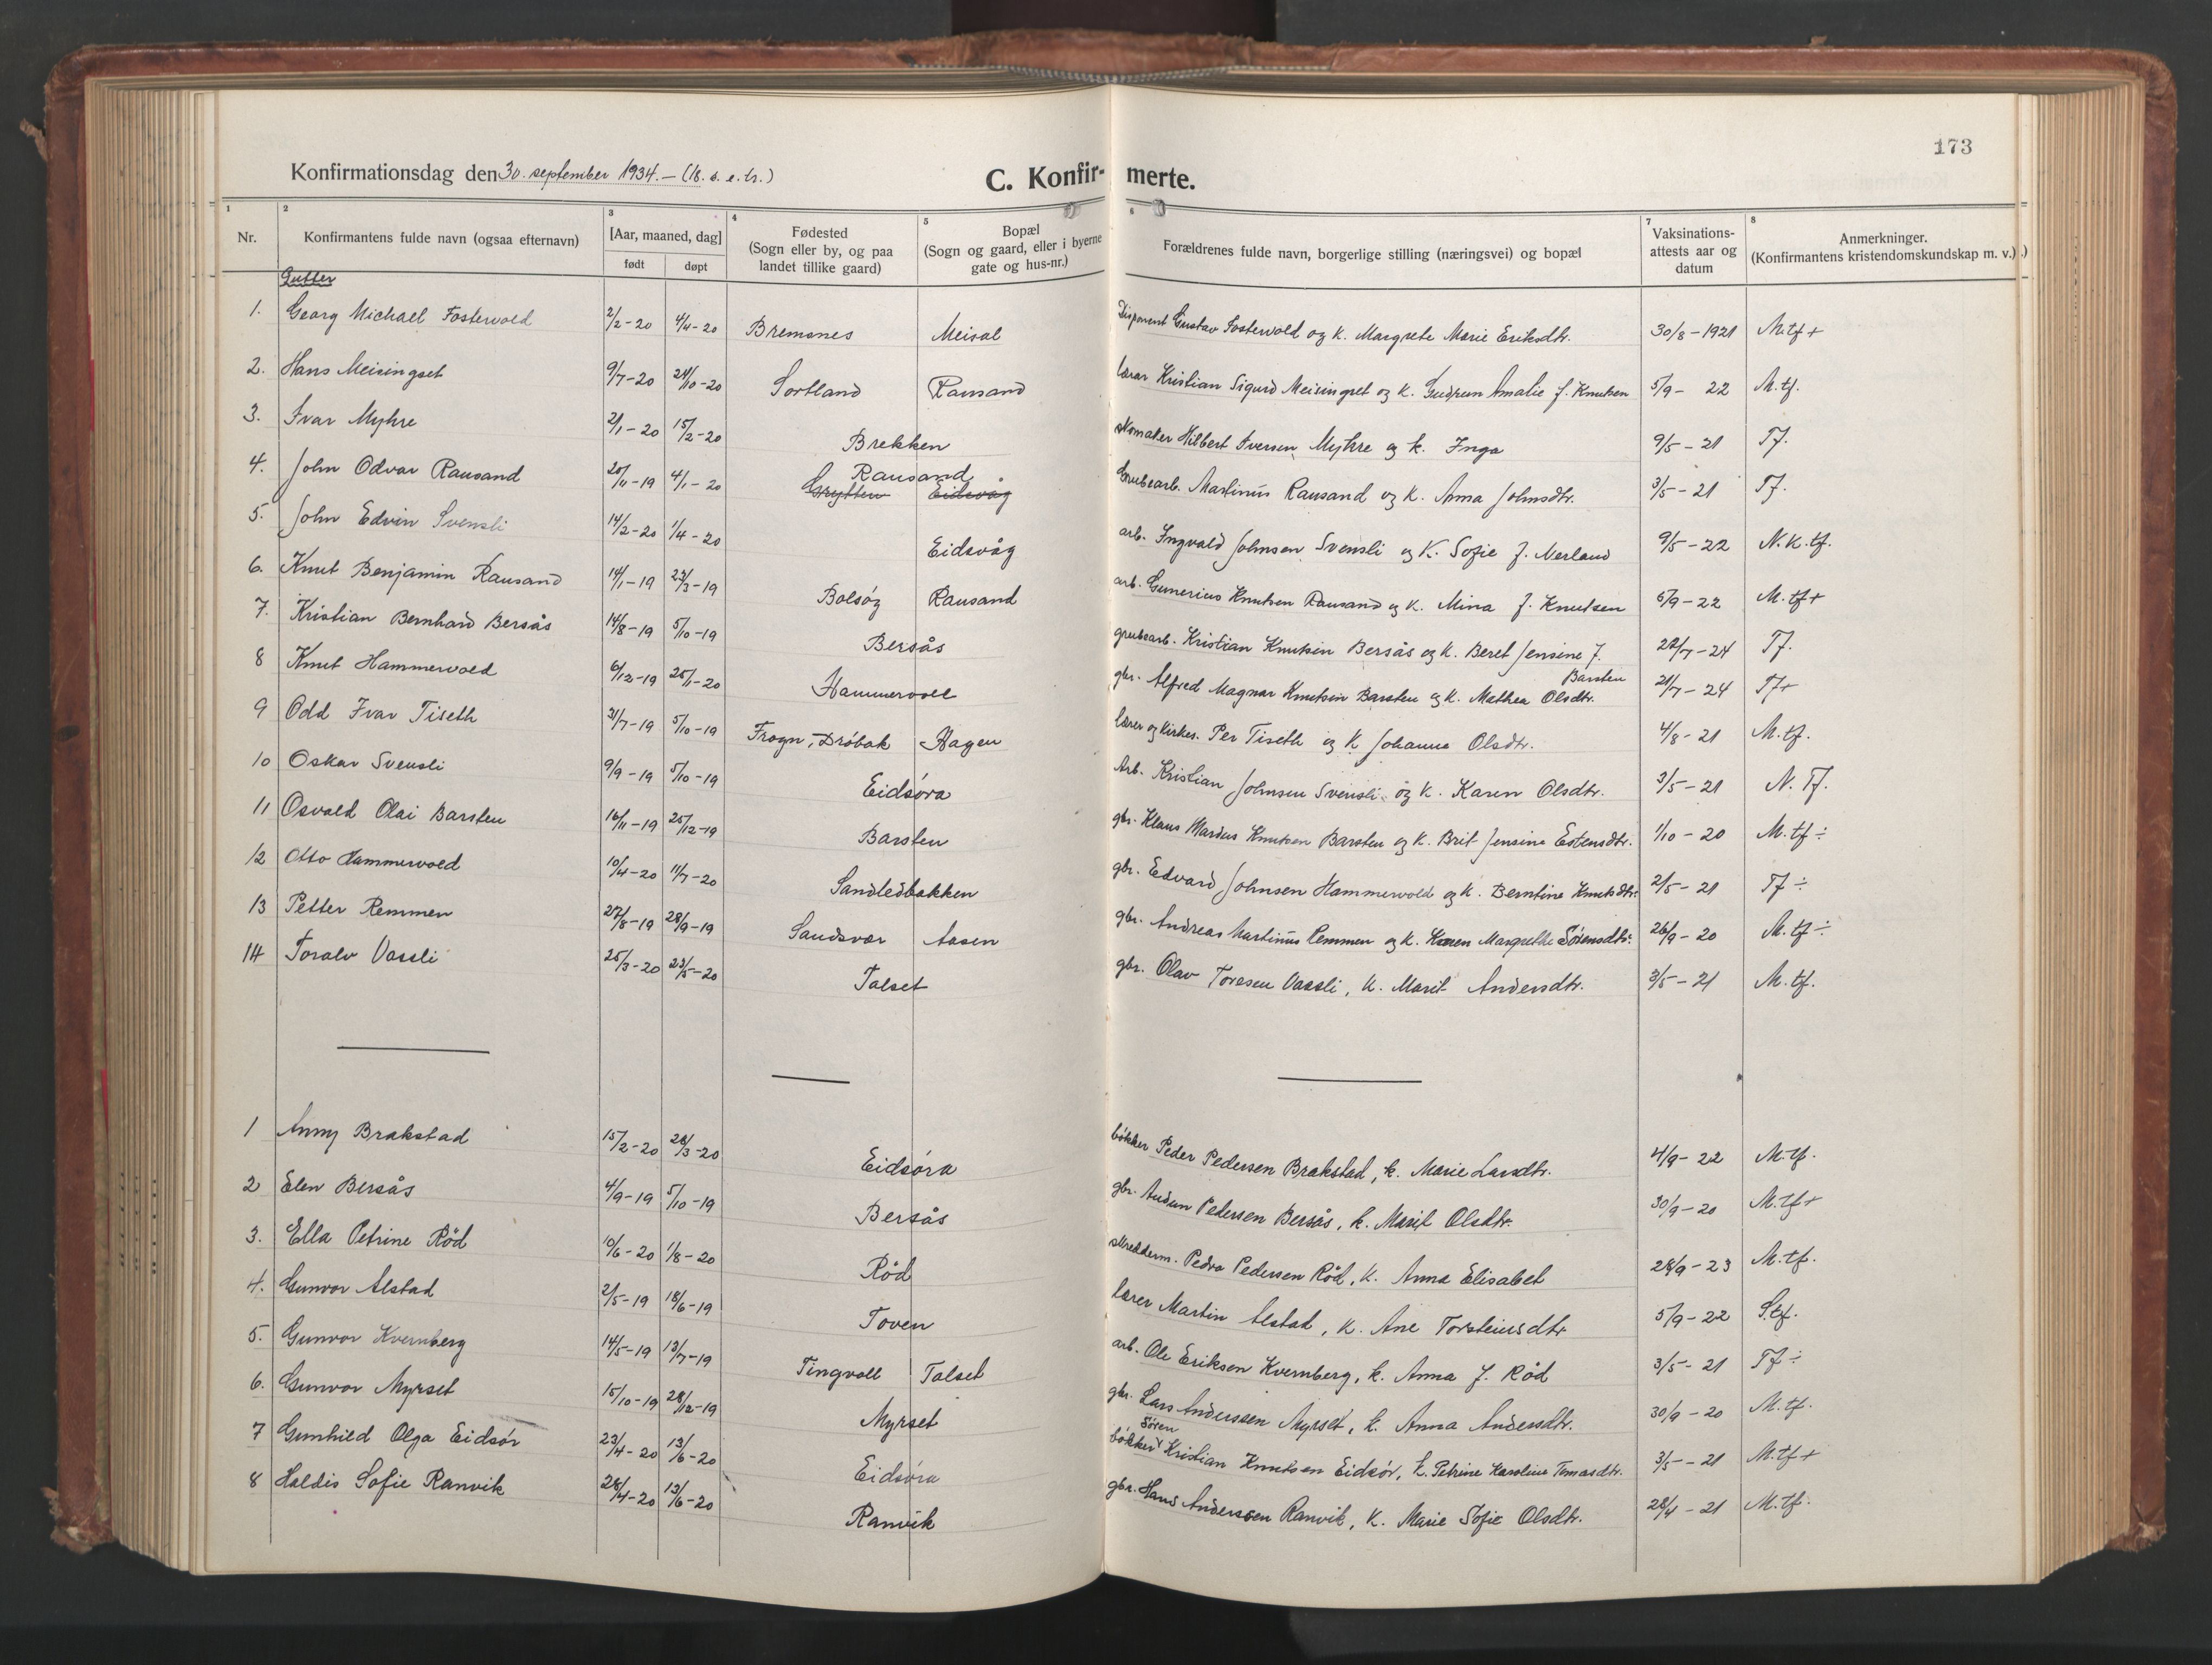 173
Konfirmationsdag den 30. september 1934. – (18. s. e. tr.)
C. Konfir- merte.
1 2 3 4 5 6 7 8
Nr. Konfirmantens fulde navn (ogsaa efternavn) [Aar, maaned, dag] født døpt Fødested (Sogn eller by, og paa landet tillike gaard) Bopæl (Sogn og gaard, eller i byerne gate og hus-nr.) Forældrenes fulde navn, borgerlige stilling (næringsvei) og bopæl Vaksinations-attests aar og datum Anmerkninger. (Konfirmantens kristendomskundskap m. v.)
Gutter
1. Georg Michael Fostervold 2/2-20 4/4-20 Bremsnes Meisal Disponent Gustav Fostervold og k. Margrete Marie Eriksdtr. 30/8-1921 M.tf +
2. Hans Meisingset 9/7-20 24/10-20 Sortland Rausand lærer Kristian Sigurd Meisingset og k. Gudrun Amalie f. Knutsen 5/9- 22 M.tf.
3. Ivar Myhre 2/1-20 15/2-20 Brekken skomaker Hilbert Iversen Myhre og k. Inga 9/5-21 Tf.
4. John Odvar Rausand 20/11-19 4/1-20 Rausand Grytten Eidsvåg Grubearb. Martinus Rausand og k. Anna Johnsdtr. 3/5-21 Tf.
5. John Edvin Svensli 14/2-20 1/4-20 Eidsvåg arb. Ingvald Johnsen Svensli og k. Sofie f. Nerland 9/5-22 N.k.tf.
6. Knut Benjamin Rausand 14/1-19 23/3-19 Bolsöy Rausand arb. Gunerius Knutsen Rausand og k. Mina f. Knutsen 5/9-22 M.tf+
7. Kristian Bernhard Bersås 14/8-19 5/10-19 Bersås grubearb. Kristian Knutsen Bersås og k. Beret Jensine f. Barsten 22/7-24 Tf.
8 Knut Hammervold 6/12-19 25/1-20 Hammervoll gbr. Alfred Magnar Knutsen Barsten og k. Mathea Olsdtr. 21/7-24 Tf+
9 Odd Ivar Tiseth 31/7-19 5/10-19 Frogn, Dröbak Hagen lærer og kirkes. Per Tiseth og k. Johanna Olsdtr. 4/8-21 M.tf.
10 Oskar Svensli 9/9-19 5/10-19 Eidsöra Arb. Kristian Johnsen Svensli og k. Karen Olsdtr. 3/5-21 N. Tf.
11 Osvald Olai Barsten 16/11-19 25/12-19 Barsten gbr. Klaus Marius Knutsen Barsten og k. Brit Jensine Estensdtr. 1/10-20 M.tf ÷
12 Otto Hammervold 10/4-20 11/7-20 Sandledbakken gbr. Edvard Johnsen Hammervold og k. Berntine Knutsdtr. 2/5-21 Tf ÷
13 Petter Remmen 27/8-19 28/9-19 Sandsvær Aasen gbr. Andreas Martinus Remmen og k. Karen Margrethe Sörensdtr. 26/9-20 M.tf ÷
14 Toralv Vassli 25/3-20 23/5-20 Talset gbr. Olav Toresen Vassli, k. Marit Andersdtr. 3/5-21 M.tf.
1 Anny Brakstad 15/2-20 28/3-20 Eidsöra bökker Peder Pedersen Brakstad, k. Marie Larsdtr. 4/9-22 M.tf.
2 Elen Bersås 4/9-19 5/10-19 Bersås gbr. Audun Pedersen Bersås, k. Marit Olsdtr. 30/9-20 M.tf+
3. Ella Petrine Röd 10/6-20 1/8-20 Röd skredderm. Pedro Pedersen Röd, k. Anna Elisabet 28/9-23 M.tf.
4. Gunvor Alstad 2/5-19 18/6-19 Toven lærer Martin Alstad, k. Ane Torsteinsdtr 5/9-22 S.tf.
5. Gunvor Kvernberg 14/5-19 13/7-19 Tingvoll Talset arb. Ole Eriksen Kvernberg, k. Anna f. Röd 3/5-21 Tf ÷
6. Gunvor Myrset 15/10-19 28/12-19 Myrset gbr. Lars Anderssen Myrset, k. Anna Andersdtr. 30/9-20 M.tf.
7 Gunhild Olga Eidsör 23/4-20 13/6-20 Eidsöra bökker Sören Kristian Knutsen Eidsör, k. Petrine Karoline Tomasdtr. 3/5-21 M.tf+
8 Haldis Sofie Ranvik 28/4-20 13/6-20 Ranvik gbr. Hans Anderssen Ranvik, k. Marie Sofie Olsdtr. 28/4-21 M.tf.